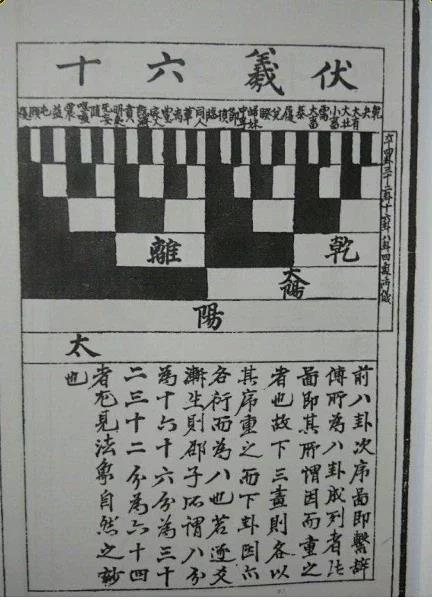 伏羲六十
乾 夬 大有 大壯 小畜 需 大畜 泰 履 兌 睽 歸妹 中孚 節 損 臨 同人 革 离 豐 家人 既濟 賁 明夷 无妄 隨 噬嗑 震 益 屯 頤 復
六十四卦三十二卦十六卦八卦四象兩儀
乾 離
太陽
陽
太
前八卦次序圖即繫辭
傳所為八卦成列者此
圖即其所謂因而重之
者也故下三畫則各以
其序重之而下卦因亦
各衍而為八也若逐爻
漸生則邵子所謂八分
為十六十六分為三十
二三十二分為六十四
者尤見法象自然之妙
也